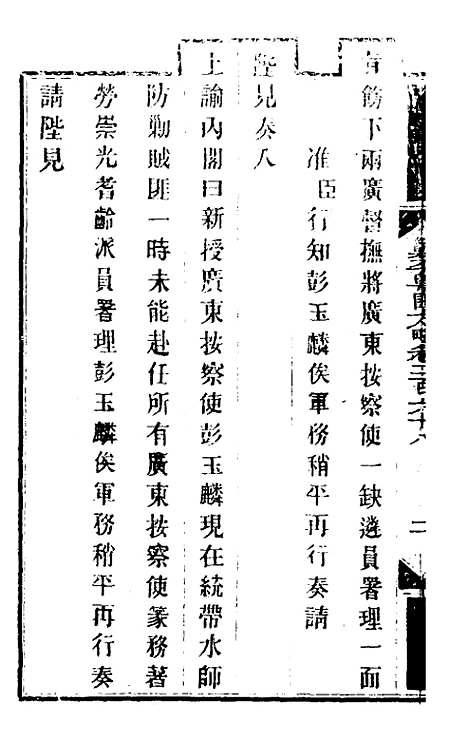 旨飭下兩廣督撫將廣東按察使一缺遴員署理一面
准臣行知彭玉麟俟軍務稍平再行奏請
陛見奏入
上諭內閣曰新授廣東按察使彭玉麟現在統帶水師
防勦賊匪一時未能赴任所有廣東按察使篆務著
勞崇光耆齡派員署理彭玉麟俟軍務稍平再行奏
請陛見
方略卷二百六十八
二